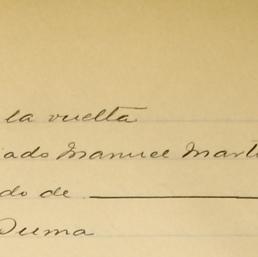 la vuelta
ado Manuel Mart
do de
Suma